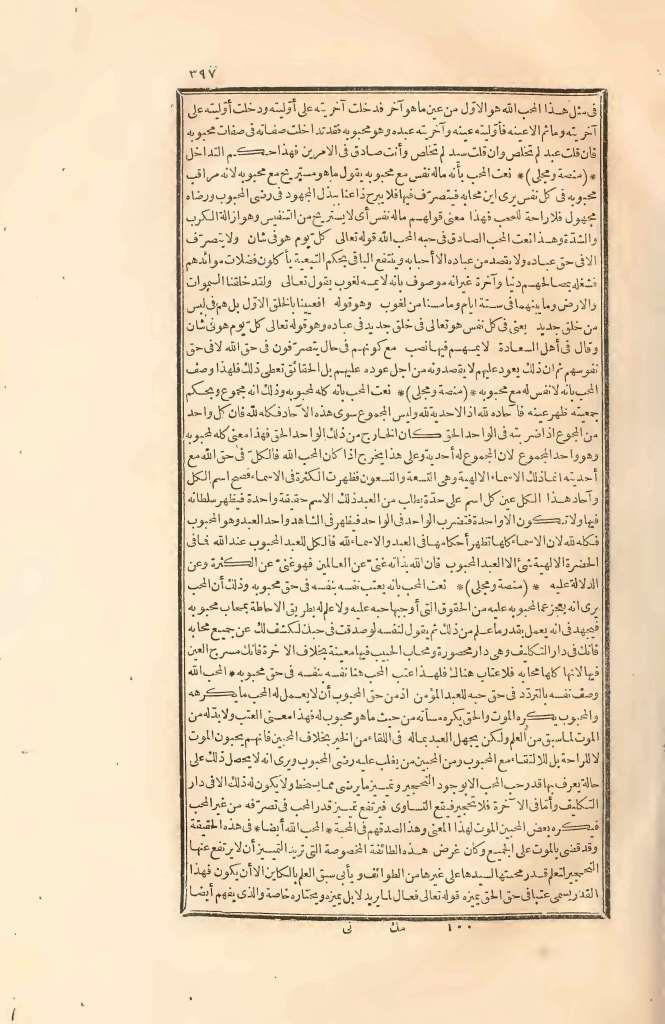 ٣٩٧
فى مثل هذا المحب الله هو الاول من عين ما هو آخر فدخلت آخريته على أوّليته ودخلت أوّليته على
آخريته وما ثم الاعينه فأوّليته عينه وآخريته عبده وهو محبوبه فقد تداخلت صفاته فى صفات محبوبه
فان قلت عبد لم تتخلص وان قلت سيد لم تتخلص وأنت صادق فى الامرين فهذا حكم التداخل
* (منصة ومجلى) * نعت المحب بأنه ماله نفس مع محبوبه يقول ما هو مستريح مع محبوبه لانه مراقب
محبوبه فى كل نفس يرى اين محابه فيتصرّف فيها فلا يبرح ذا عنا ببذل المجهود فى رضى المحبوب ورضاه
مجهول فلا راحة للمحب فهذا معنى قولهم ماله نفس أى لا يستريح من التنفيس وهو ازالة الكرب
والشدّة وهذا نعت المحب الصادق فى حبه المحب الله قوله تعالى كلّ يوم هو فى شان ولا يتصرّف
الا فى حق عباده ولا يقصد من عباده الا أحبابه وينتفع الباقى بحكم التبعية يأكلون فضلات موائدهم
فشغله بمصالحهم دنيا وآخرة غير انه موصوف بانه لا يمسه لغوب يقول تعالى ولقد خلقنا السموات
والارض وما بينهما فى ستة ايام وما مسنا من لغوب وهو قوله افعيينا بالخلق الاول بل هم فى لبس
من خلق جديد يعنى فى كل نفس هو تعالى فى خلق جديد فى عباده وهو قوله تعالى كلّ يوم هو فى شان
وقال فى أهل السعادة لا يمسهم فيها نصب مع كونهم فى حال يتصرّفون فى حق الله لا فى حق
نفوسهم ثم ان ذلك يعود عليهم لا يقصدونه من اجل عوده عليهم بل الحقائق تعطى ذلك فلهذا وصف
المحب بانه لا نفس له مع محبوبه * (منصة ومجلى) * نعت المحب بانه كله لمحبوبه وذلك انه مجموع وبحكم
جمعيته ظهر عينه فآحاده لله اذ الاحدية لله وليس المجموع سوى هذه الآحاد فكله لله فان كل واحد
من المجموع اذا ضربته فى الواحد الحق كان الخارج من ذلك الواحد الحق فهذا معنى كله لمحبوبه
وهو واحد المجموع لان المجموع له أحدية وعلى هذا يخرج اذا كان المحب الله فالكلّ فى حق الله مع
أحديته انما ذلك الاسماء الالهية وهى التسعة والتسعون فظهرت الكثرة فى الاسماء فصح اسم الكل
وآحاد هذا الكل عين كل اسم على حدة يطلب من العبد ذلك الاسم حقيقة واحدة فيظهر سلطانه
فيها ولا تكون الا واحدة فتضرب الواحد فى الواحد فيظهر فى الشاهد واحد العبد وهو المحبوب
فكله لله لان الاسماء كلها تظهر أحكامها فى العبد والاسماء لله فالكل للعبد المحبوب عند الله فما فى
الحضرة الالهية شئ الا للعبد المحبوب فان الله بذاته غنىّ عن العالمين فهو غنىّ عن الكثرة وعن
الدلالة عليه * (منصة ومجلى) * نعت المحب بانه يعتب نفسه بنفسه فى حق محبوبه وذلك أن المحب
يرى انه يعجز عما لمحبوبه عليه من الحقوق التى أوجبها حبه عليه ولا علم له بطريق الاحاطة بمحاب محبوبه
فيجهد فى انه يعمل بقدر ما علم من ذلك ثم يقول لنفسه لو صدقت فى حبك لكشف لك عن جميع محابه
فانك فى دار التكليف وهى دار محصورة ومحاب الحبيب فيها معينة بخلاف الآخرة فانك مسرح العين
فيها لانها كلها محابه فلا عتاب هنالك فلهذا عتب المحب هنا نفسه بنفسه فى حق محبوبه * المحب الله
وصف نفسه بالتردّد فى حق حبه للعبد المؤمن اذ من حق المحبوب أن لا يعمل له المحب ما يكرهه
والمحبوب يكره الموت والحق يكره مسأته من حيث ما هو محبوب له فهذا معنى العتب ولا بدّ له من
الموت لما سبق من العلم ولكن يجهل العبد بماله فى اللقاء من الخير بخلاف المحبين فانهم يحبون الموت
لا للراحة بل للالتقاء مع المحبوب ومن المحبين من يغلب عليه رضى المحبوب ويرى انه لا يحصل ذلك على
حالة يعرف بها قدر حب المحب الا بوجود التحجير وتمييز ما يرضى مما يسخط ولا يكون له ذلك الا فى دار
التكليف وأما فى الآخرة فلا تحجير فيقع التساوى فيرتفع تمييز قدر المحب فى تصرّفه من غير المحب
فيكره بعض المحبين الموت لهذا المعنى وهذا لصدقهم فى المحبة * المحب الله أيضا * فى هذه الحقيقة
وقد قضى بالموت على الجميع وكان غرض هذه الطائفة المخصوصة التى تريد التمييز أن لا يرتفع عنها
التحجير لتعلم قدر محبتها لسيدها على غيرها من الطوائف ويأبى سبق العلم بالكاين الا أن يكون فهذا
القدر يسمى عتبا فى حق الحق يميزه قوله تعالى فعال لما يريد لا بل يميزه ويختاره خاصة والذى يفهم أيضا
١٠٠ مك نى